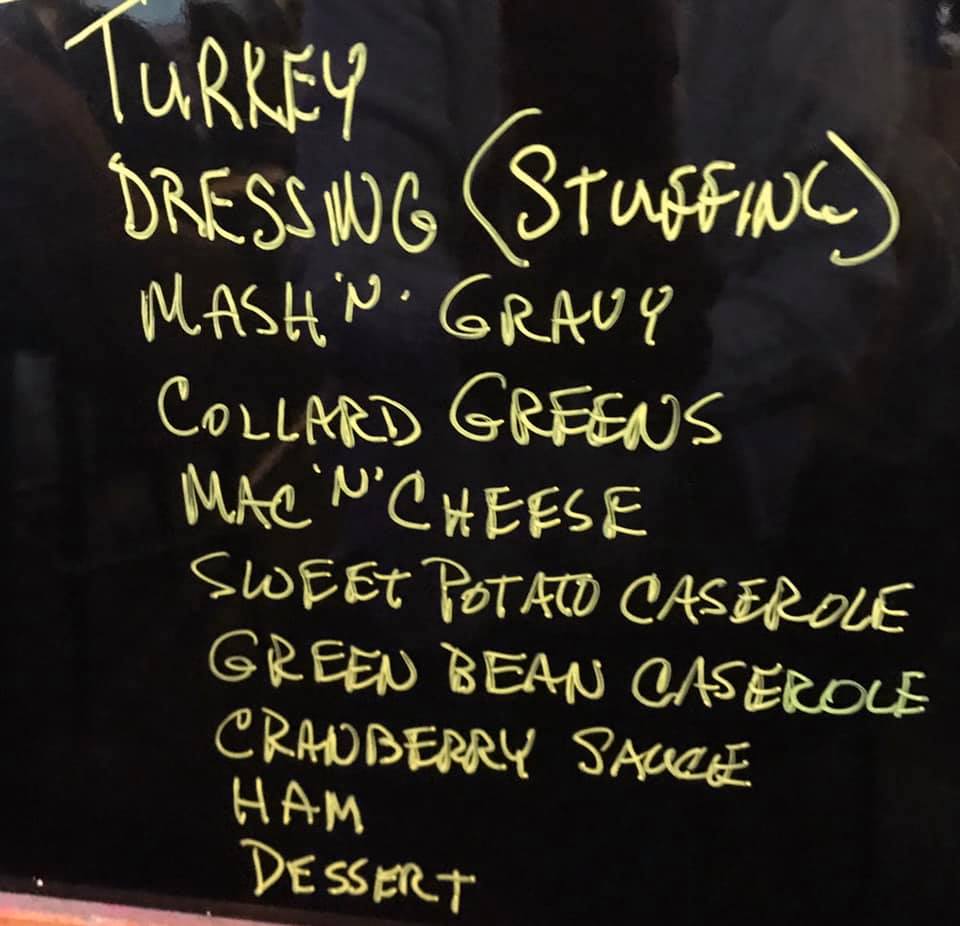 TURKEY
DRESSING (STUFFING)
MASH 'N' GRAVY
COLLARD GREENS
MAC 'N' CHEESE
SWEET POTATO CASEROLE
GREEN BEAN CASEROLE
CRANBERRY SAUCE
HAM
DESSERT